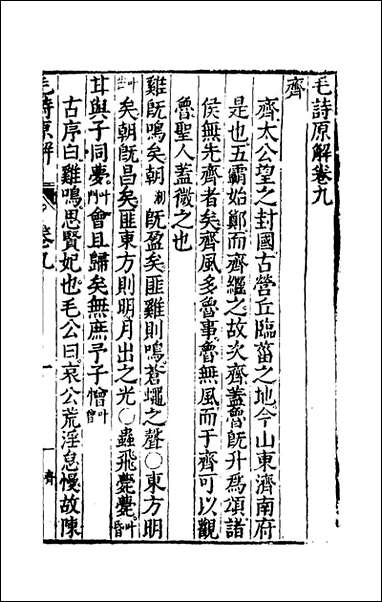 毛詩原解卷九
齊
齊太公望之封國古營丘臨菑之地今山東濟南府
是也五霸始鄭而齊繼之故次齊蓋魯既升爲頌諸
侯無先齊者矣齊風多魯事魯無風而于齊可以觀
魯聖人蓋微之也
雞既鳴矣朝潮既盈矣匪雞則鳴蒼蠅之聲○東方明叶芒
矣朝既昌矣匪東方則明月出之光○蟲飛薨薨叶昏
甘與子同夢叶門會且歸矣無庶予子憎叶
古序曰雞鳴思賢妃也毛公曰哀公荒淫怠慢故陳
毛詩原解
卷九
一
齊